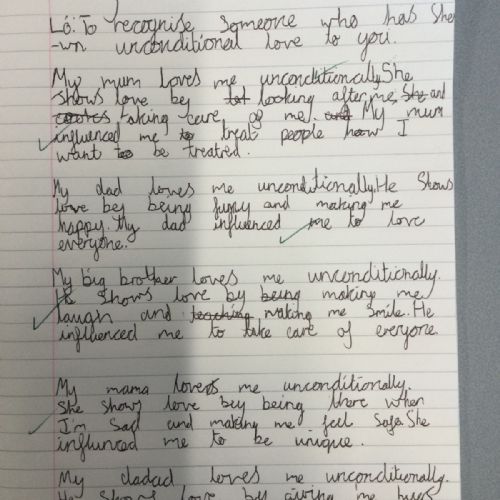 Lo: To recognise someone who has sho
-wn unconditional love to you.
My mum loves me unconditionally She
shows love bey looking after me, She and
takeing care of me. and My mum
influenced me to treat people how I
want too be treatred.
My dad loves me unconditionally He shows
love bey being funny and making me
happy. My dad influenced me to love
everyone.
My big brother loves me unconditionally.
He shows love by being making me
laugh and teaching making me smile. He
influenced me to take care of everyone
My mama loves me unconditionally.
She shows love bey being there when
I'm sad and making me feel safe She
influnced me to be unique.
My dadad loves me unconditionally.
He shows love by giving me hugs